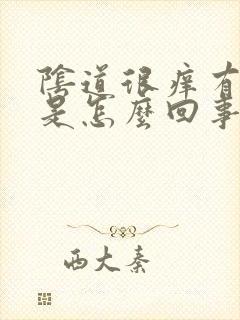 陰道很痒有
是怎麼回事
西大秦